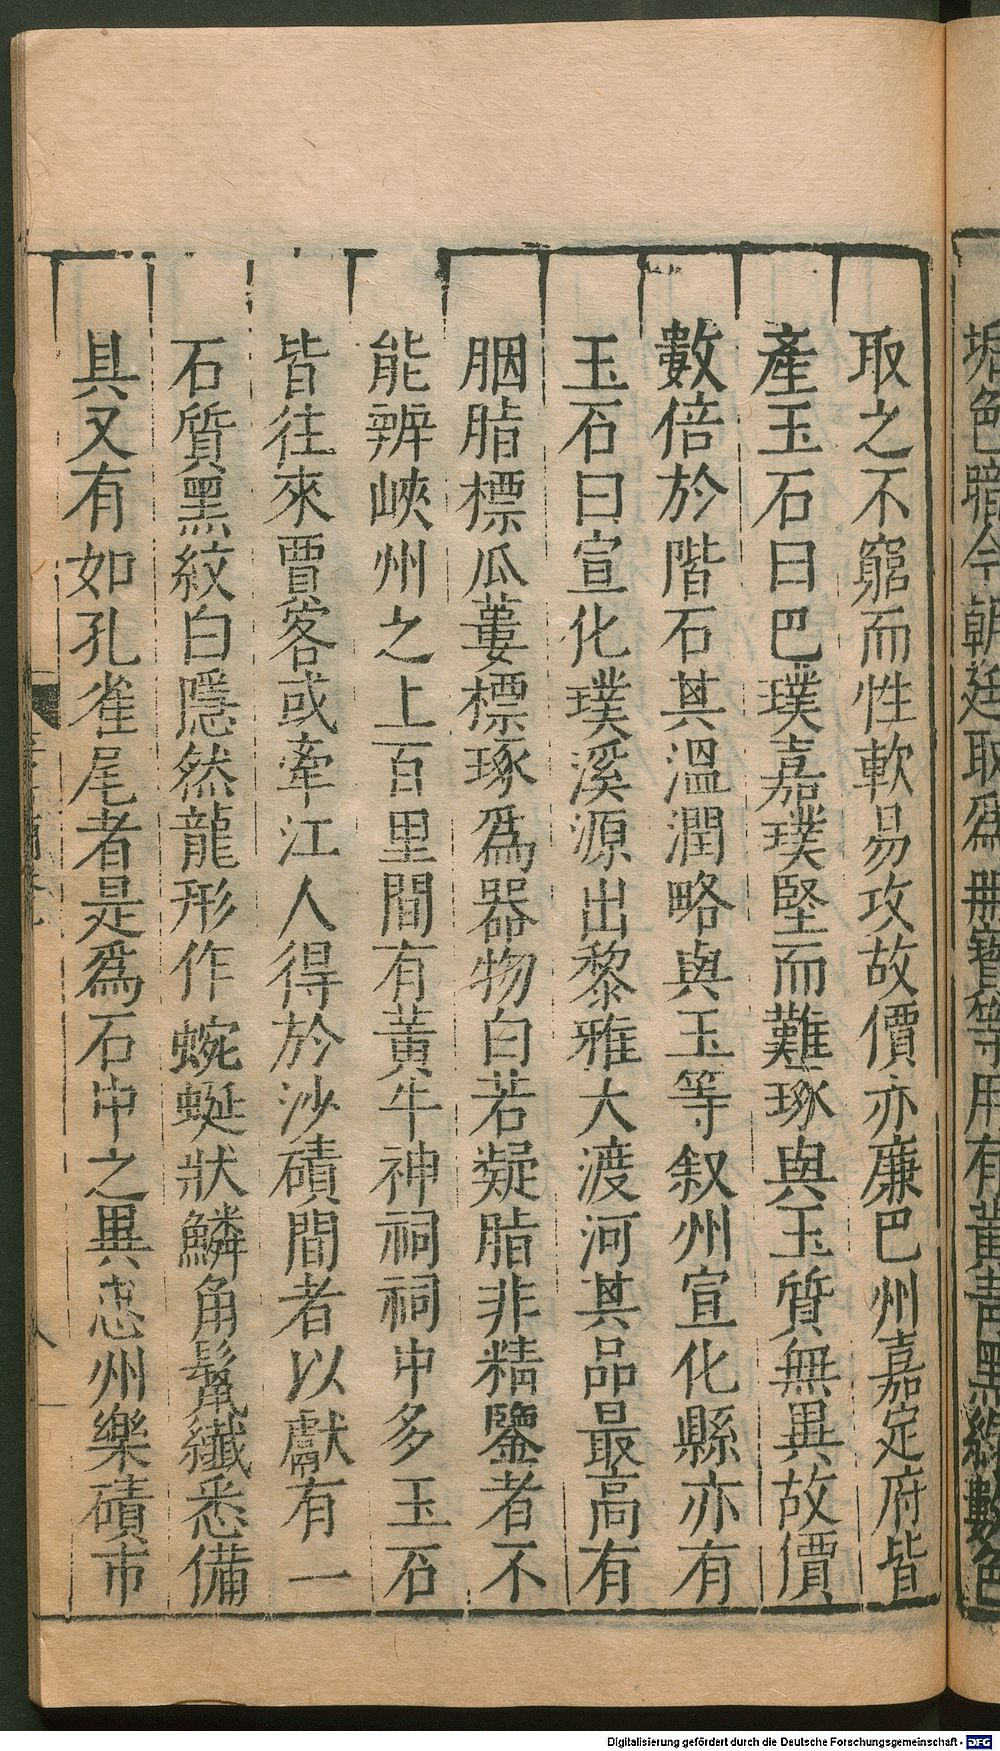 垢色職今朝廷取爲册寳等用有黃青黑綠數色
取之不窮而性軟易攻故價亦廉巴州嘉定府皆
產玉石曰巴璞嘉璞堅而難琢與玉質無異故價
數倍於階石其溫潤略與玉等叙州宣化縣亦有
玉石曰宣化璞溪源出黎雅大渡河其品最高有
胭脂標瓜蔞標琢爲器物白若凝脂非精鑒者不
能辨峽州之上百里間有黃牛神祠祠中多玉石
皆往來賈客或牽江人得於沙磧間者以獻有一
石質黑紋白隱然龍形作蜿蜒狀鱗角鬣纖悉備
具又有如孔雀尾者是爲石中之異忠州樂磧市
八
Digitalisierung gefördert durch die Deutsche Forschungsgemeinschaft - DFG